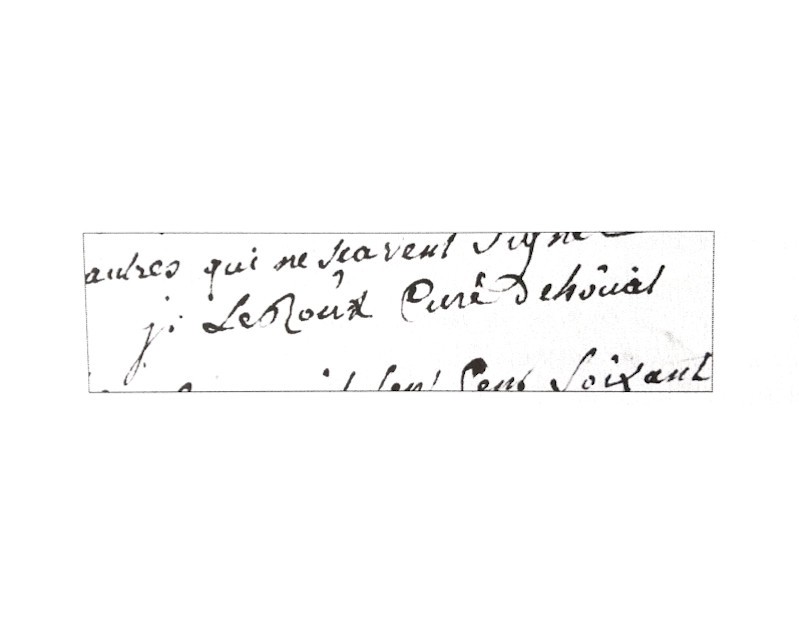 autres qui ne scavent signer
j. LeRoûx Curé Dehoûat
sept Cent soixant